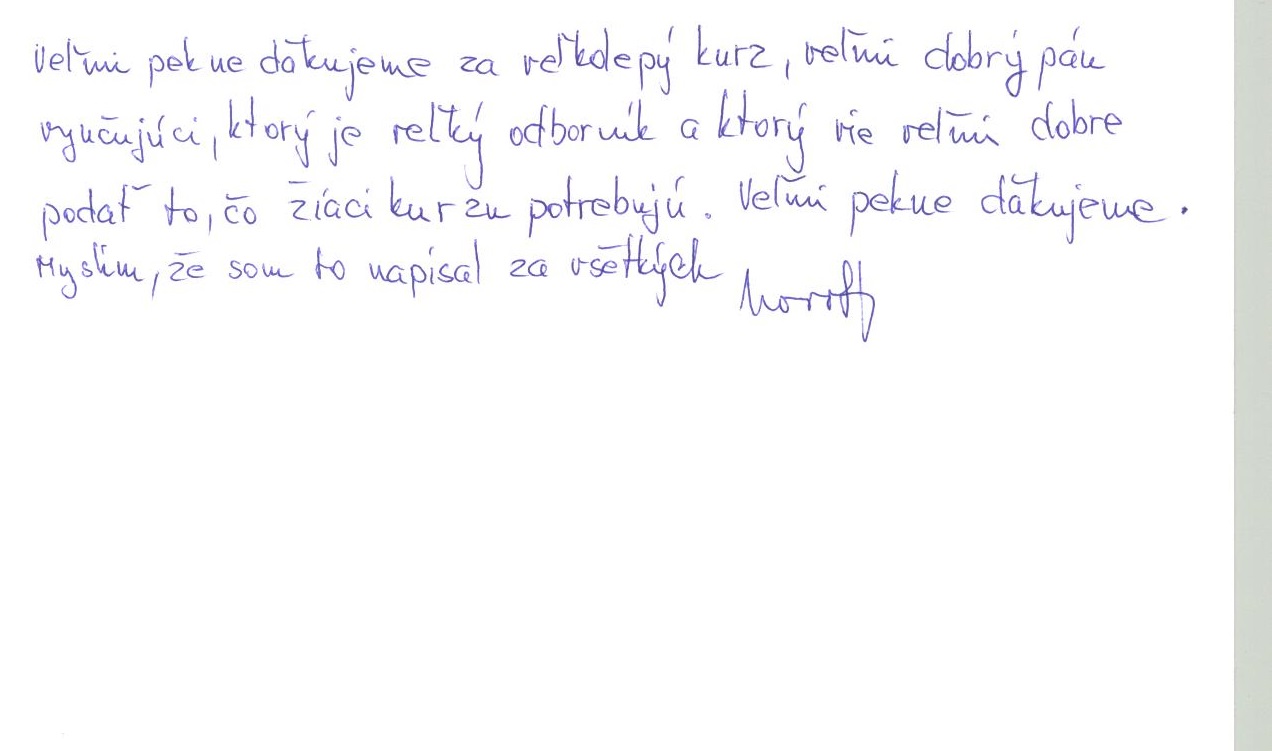 Veľmi pekne ďakujeme za veľkolepý kurz, veľmi dobrý pán
vyučujúci, ktorý je veľký odborník a ktorý vie veľmi dobre
podať to, čo žiáci kurzu potrebujú. Veľmi pekne ďakujeme.
Myslím, že som to napísal za všetkých